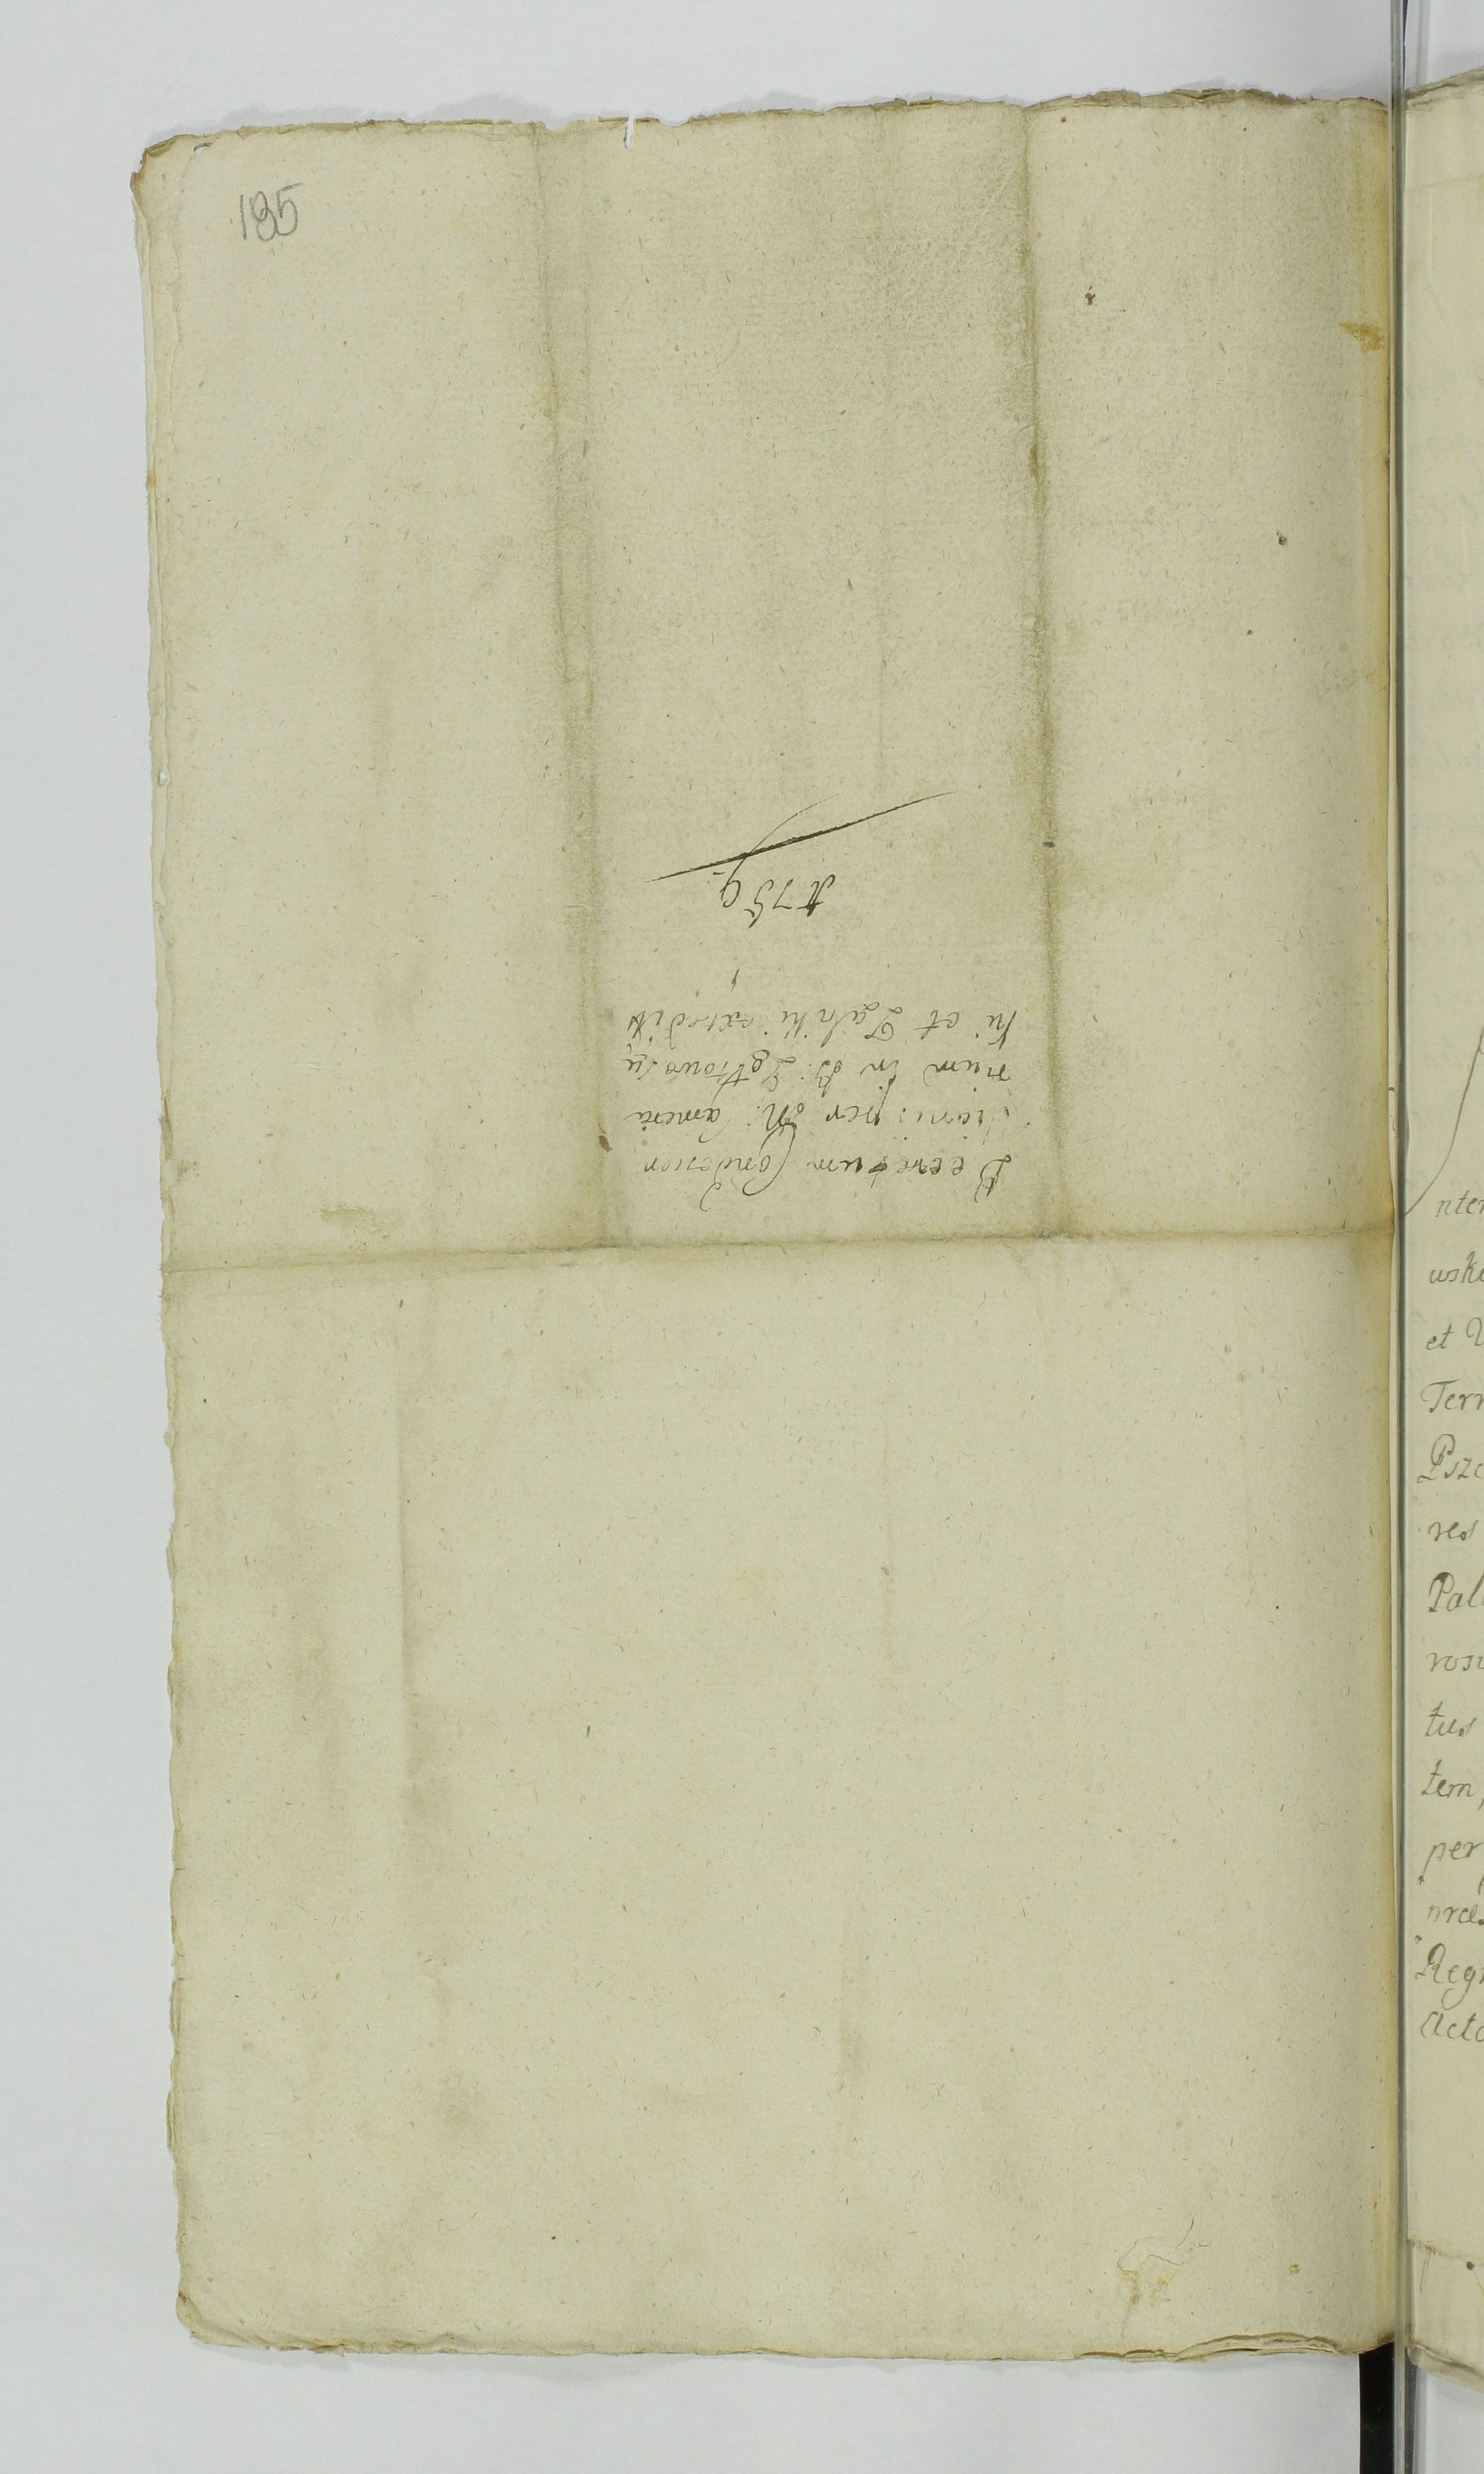 185
Decretum Condescen
sionis per M. Camera
rium in B. Zółtowos
ki et Zaleski extradit
N 759.
nter
wski
et V
Terr
Psze
res
Pal
rosi
tus
tem,
per
præ
Regn
Acto